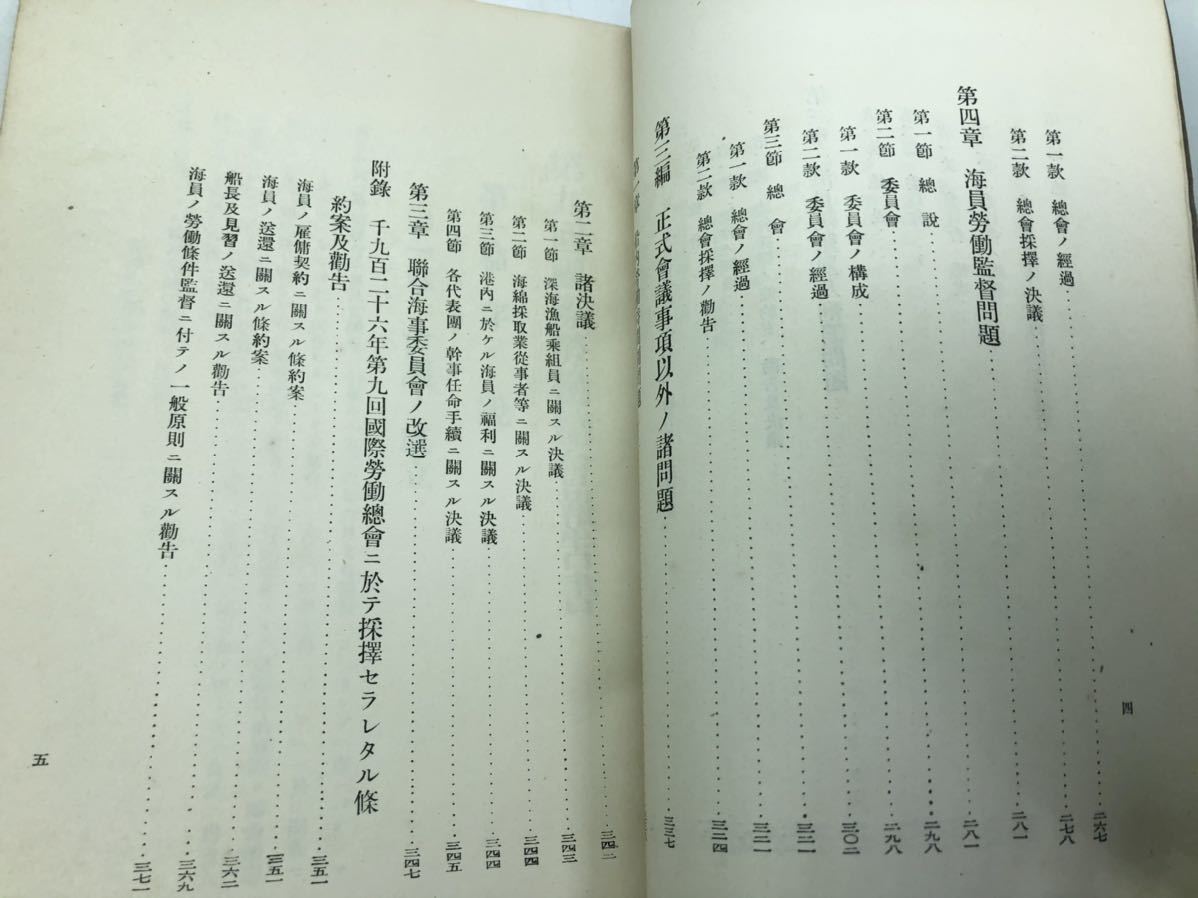 第一款 總會ノ經過 二六七
第二款 總會採擇ノ決議 二七八
第四章 海員勞働監督問題 二八一
第一節 總說 二九八
第二節 委員會 二九八
第一款 委員會ノ構成 三〇二
第二款 委員會ノ經過
第三節 總會 三二一
第一款 總會ノ經過 三二一
第二款 總會採擇ノ勸告 三二四
第三編 正式會議事項以外ノ諸問題 三三七
四
第二章 諸決議
第一節 深海漁船乘組員ニ關スル決議 三四三
第二節 海綿採取業從事者等ニ關スル決議 三四四
第三節 港內ニ於ケル海員ノ福利ニ關スル決議 三四四
第四節 各代表團ノ幹事任命手續ニ關スル決議 三四五
第三章 聯合海事委員會ノ改選 三四七
附錄 千九百二十六年第九回國際勞働總會ニ於テ採擇セラレタル條
約案及勸告 三五一
海員ノ雇傭契約ニ關スル條約案 三五一
海員ノ送還ニ關スル條約案 三六二
船長及見習ノ送還ニ關スル勸告 三六九
海員ノ勞働條件監督ニ付テノ一般原則ニ關スル勸告 三七一
五